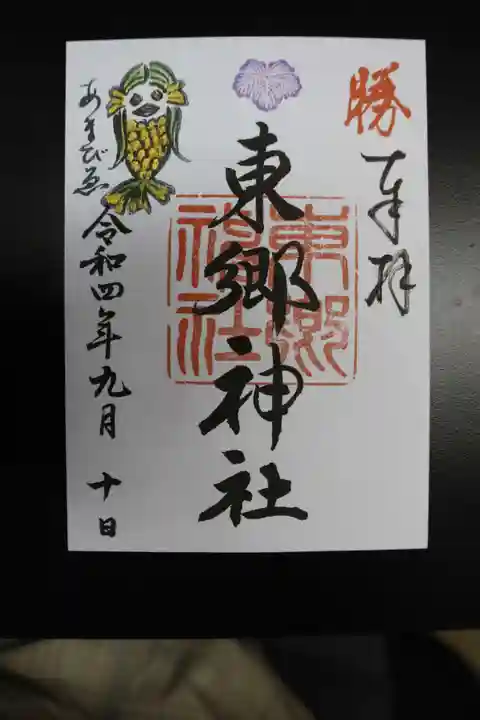 勝
奉拝
東郷神社
東郷神社
あまびゑ
令和四年九月 十日